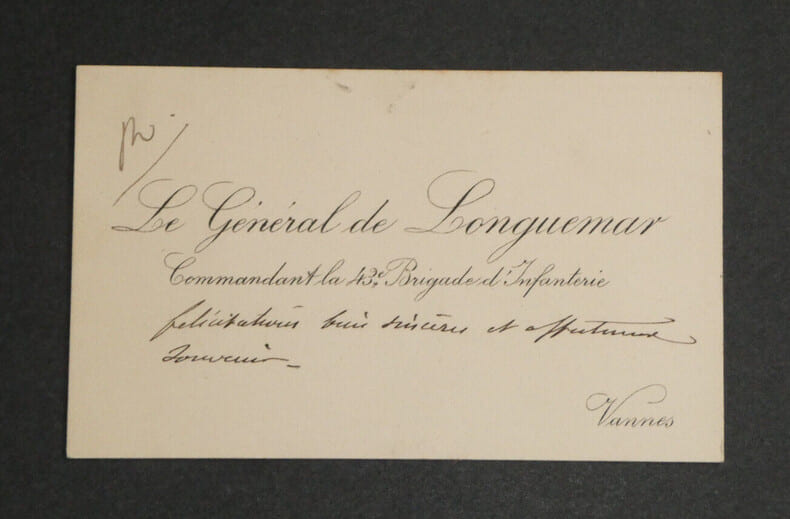 Le Général de Longuemar
Commandant la 43e Brigade d'Infanterie
félicitations bien sincères et affectueux
souvenir_
Vannes